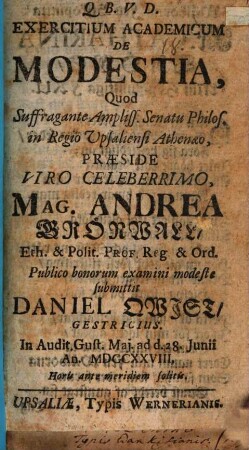 Q. B. V. D.
EXERCITIUM ACADEMICUM
DE
MODESTIA,
Quod
Suffragante Ampliss. Senatu Philos.
in Regio Upsaliensi Athenæo,
PRÆSIDE
VIRO CELEBERRIMO,
MAG. ANDREA
GRÖNWALL/
Eth. & Polit. PROF. Reg & Ord.
Publico bonorum examini modeste
submittit
DANIEL QWIST/
GESTRICIUS.
In Audit. Gust. Maj. ad d. 28. Junii
An. MDCCXXVIII.
Horis ante meridiem solitis.
UPSALIÆ, Typis WERNERIANIS.